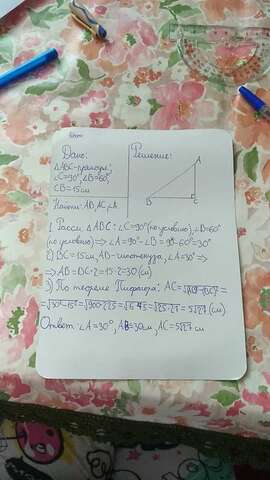 Дано:
△ABC-прямоуг.
∠C=90°, ∠B=60°,
CB=15см
Найти: AB, AC, ∠A
Решение:
A
B
C
1) Рассм. △ABC: ∠C=90°(по условию), ∠B=60°
(по условию) ⇒ ∠A=90°-∠B=90°-60°=30°
2) BC=15см, AB-гипотенуза, ∠A=30° ⇒
⇒ AB=BC·2=15·2=30(см)
3) По теореме Пифагора: AC=√AB²-BC²=
=√30²-15²=√900-225=√675=√25·27=5√27(см)
Ответ: ∠A=30°, AB=30см, AC=5√27 см